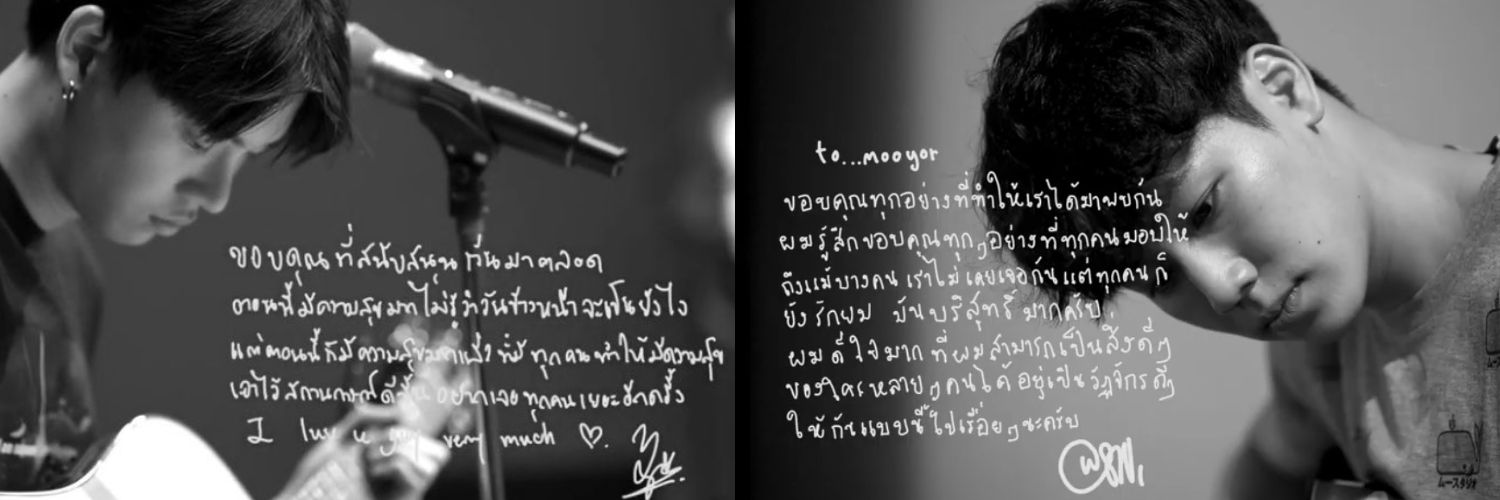 ขอบคุณที่สนับสนุนกันมาตลอด
ตอนนี้มีความสุขมากไม่รู้ว่าวันข้างหน้าจะเป็นยังไง
แต่ตอนนี้ก็มีความสุขมากแล้ว ที่มีทุกคนทำให้มีความสุข
เอาไว้สถานการณ์ดีขึ้น อยากเจอทุกคนเยอะอีกครั้ง
I luv u guy very much ♡.
to...mooyor
ขอบคุณทุกอย่างที่ทำให้เราได้มาพบกัน
ผมรู้สึกขอบคุณทุกๆอย่างที่ทุกคนมอบให้
ถึงแม้บางคน เราไม่เคยเจอกัน แต่ทุกคนก็
ยังรักผม มันบริสุทธิ์มากครับ
ผมดีใจมากที่ผมสามารถเป็นสิ่งดีๆ
ของใครหลายๆคนได้ อยู่เป็นวัฏจักรดีๆ
ให้กันแบบนี้ไปเรื่อยๆนะครับ
ムースタジオ